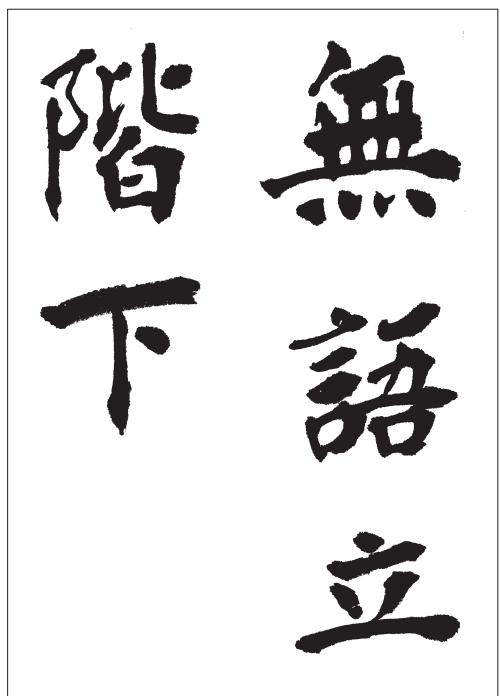 無語立
階下